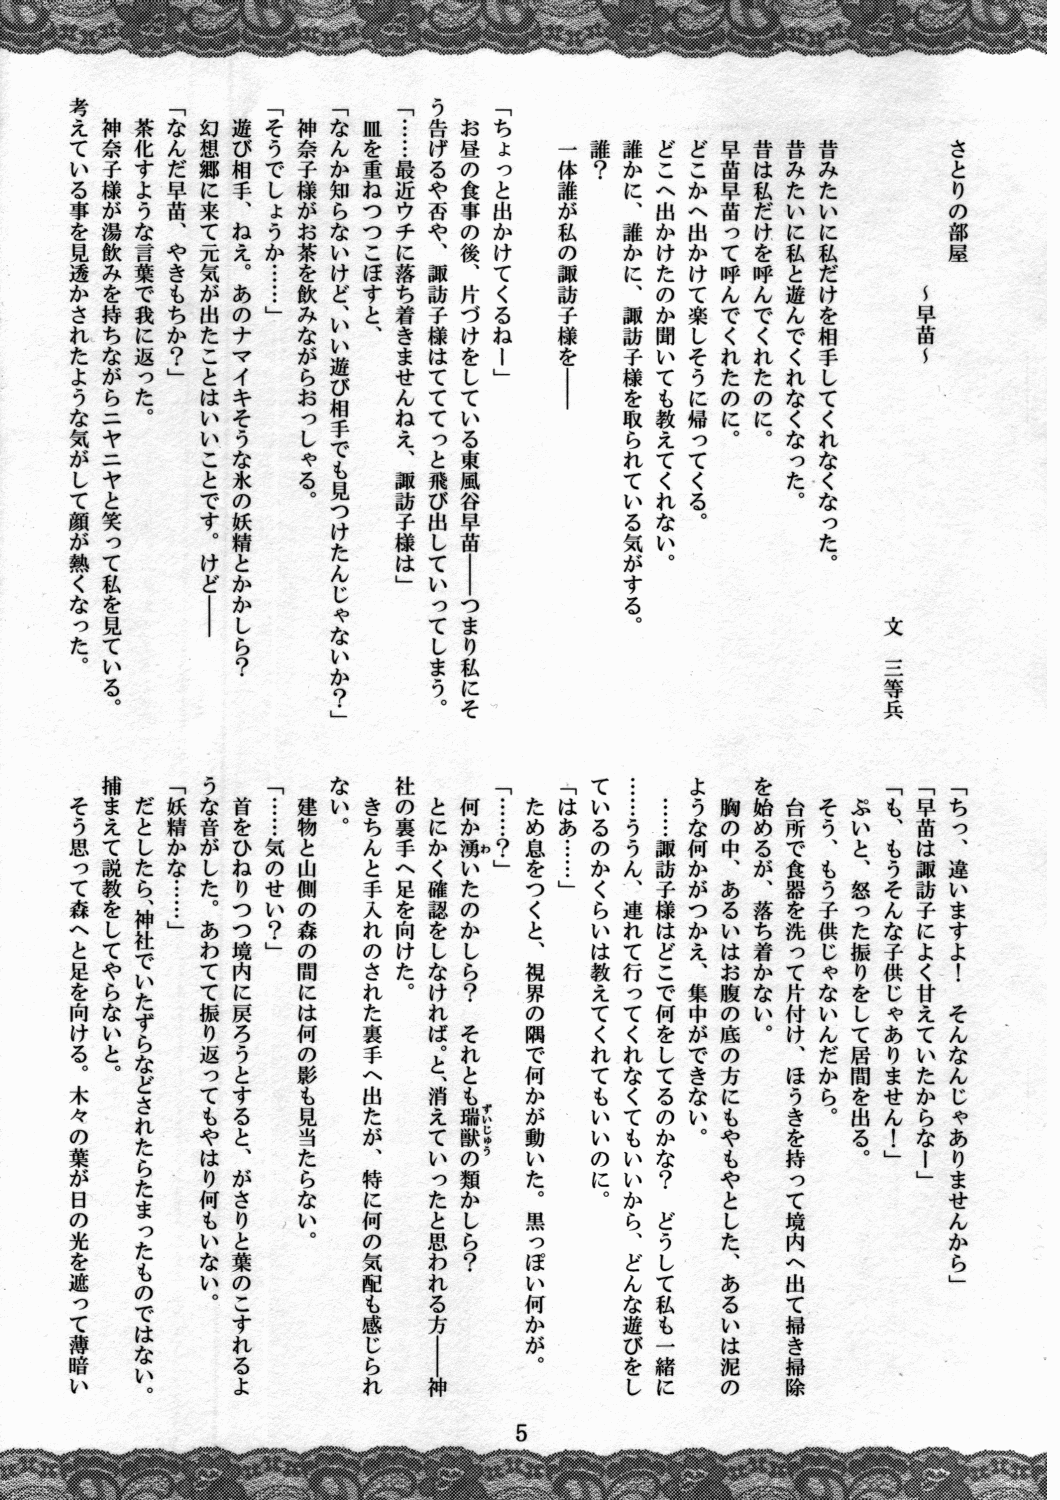 さとりの部屋
～早苗～
文　三等兵
昔みたいに私だけを相手してくれなくなった。
昔みたいに私と遊んでくれなくなった。
昔は私だけを呼んでくれたのに。
早苗早苗って呼んでくれたのに。
どこかへ出かけて楽しそうに帰ってくる。
どこへ出かけたのか聞いても教えてくれない。
誰かに、誰かに、諏訪子様を取られている気がする。
誰？
一体誰が私の諏訪子様を――
「ちょっと出かけてくるねー」
お昼の食事の後、片づけをしている東風谷早苗――つまり私にそ
う告げるや否や、諏訪子様はててっと飛び出していってしまう。
「……最近ウチに落ち着きませんねえ、諏訪子様は」
皿を重ねつつこぼすと、
「なんか知らないけど、いい遊び相手でも見つけたんじゃないか？」
神奈子様がお茶を飲みながらおっしゃる。
「そうでしょうか……」
遊び相手、ねえ。あのナマイキそうな氷の妖精とかかしら？
幻想郷に来て元気が出たことはいいことです。けど――
「なんだ早苗、やきもちか？」
茶化すような言葉で我に返った。
神奈子様が湯飲みを持ちながらニヤニヤと笑って私を見ている。
考えている事を見透かされたような気がして顔が熱くなった。
「ちっ、違いますよ！　そんなんじゃありませんから」
「早苗は諏訪子によく甘えていたからなー」
「も、もうそんな子供じゃありません！」
ぷいと、怒った振りをして居間を出る。
そう、もう子供じゃないんだから。
台所で食器を洗って片付け、ほうきを持って境内へ出て掃き掃除
を始めるが、落ち着かない。
胸の中、あるいはお腹の底の方にもやもやとした、あるいは泥の
ような何かがつかえ、集中ができない。
……諏訪子様はどこで何をしてるのかな？　どうして私も一緒に
……ううん、連れて行ってくれなくてもいいから、どんな遊びをし
ているのかくらいは教えてくれてもいいのに。
「はあ……」
ため息をつくと、視界の隅で何かが動いた。黒っぽい何かが。
「……？」
何か湧いたのかしら？　それとも瑞獣の類かしら？
とにかく確認をしなければ。と、消えていったと思われる方――神
社の裏手へ足を向けた。
きちんと手入れのされた裏手へ出たが、特に何の気配も感じられ
ない。
建物と山側の森の間には何の影も見当たらない。
「……気のせい？」
首をひねりつつ境内に戻ろうとすると、がさりと葉のこすれるよ
うな音がした。あわてて振り返ってもやはり何もいない。
「妖精かな……」
だとしたら、神社でいたずらなどされたらたまったものではない。
捕まえて説教をしてやらないと。
そう思って森へと足を向ける。木々の葉が日の光を遮って薄暗い
5